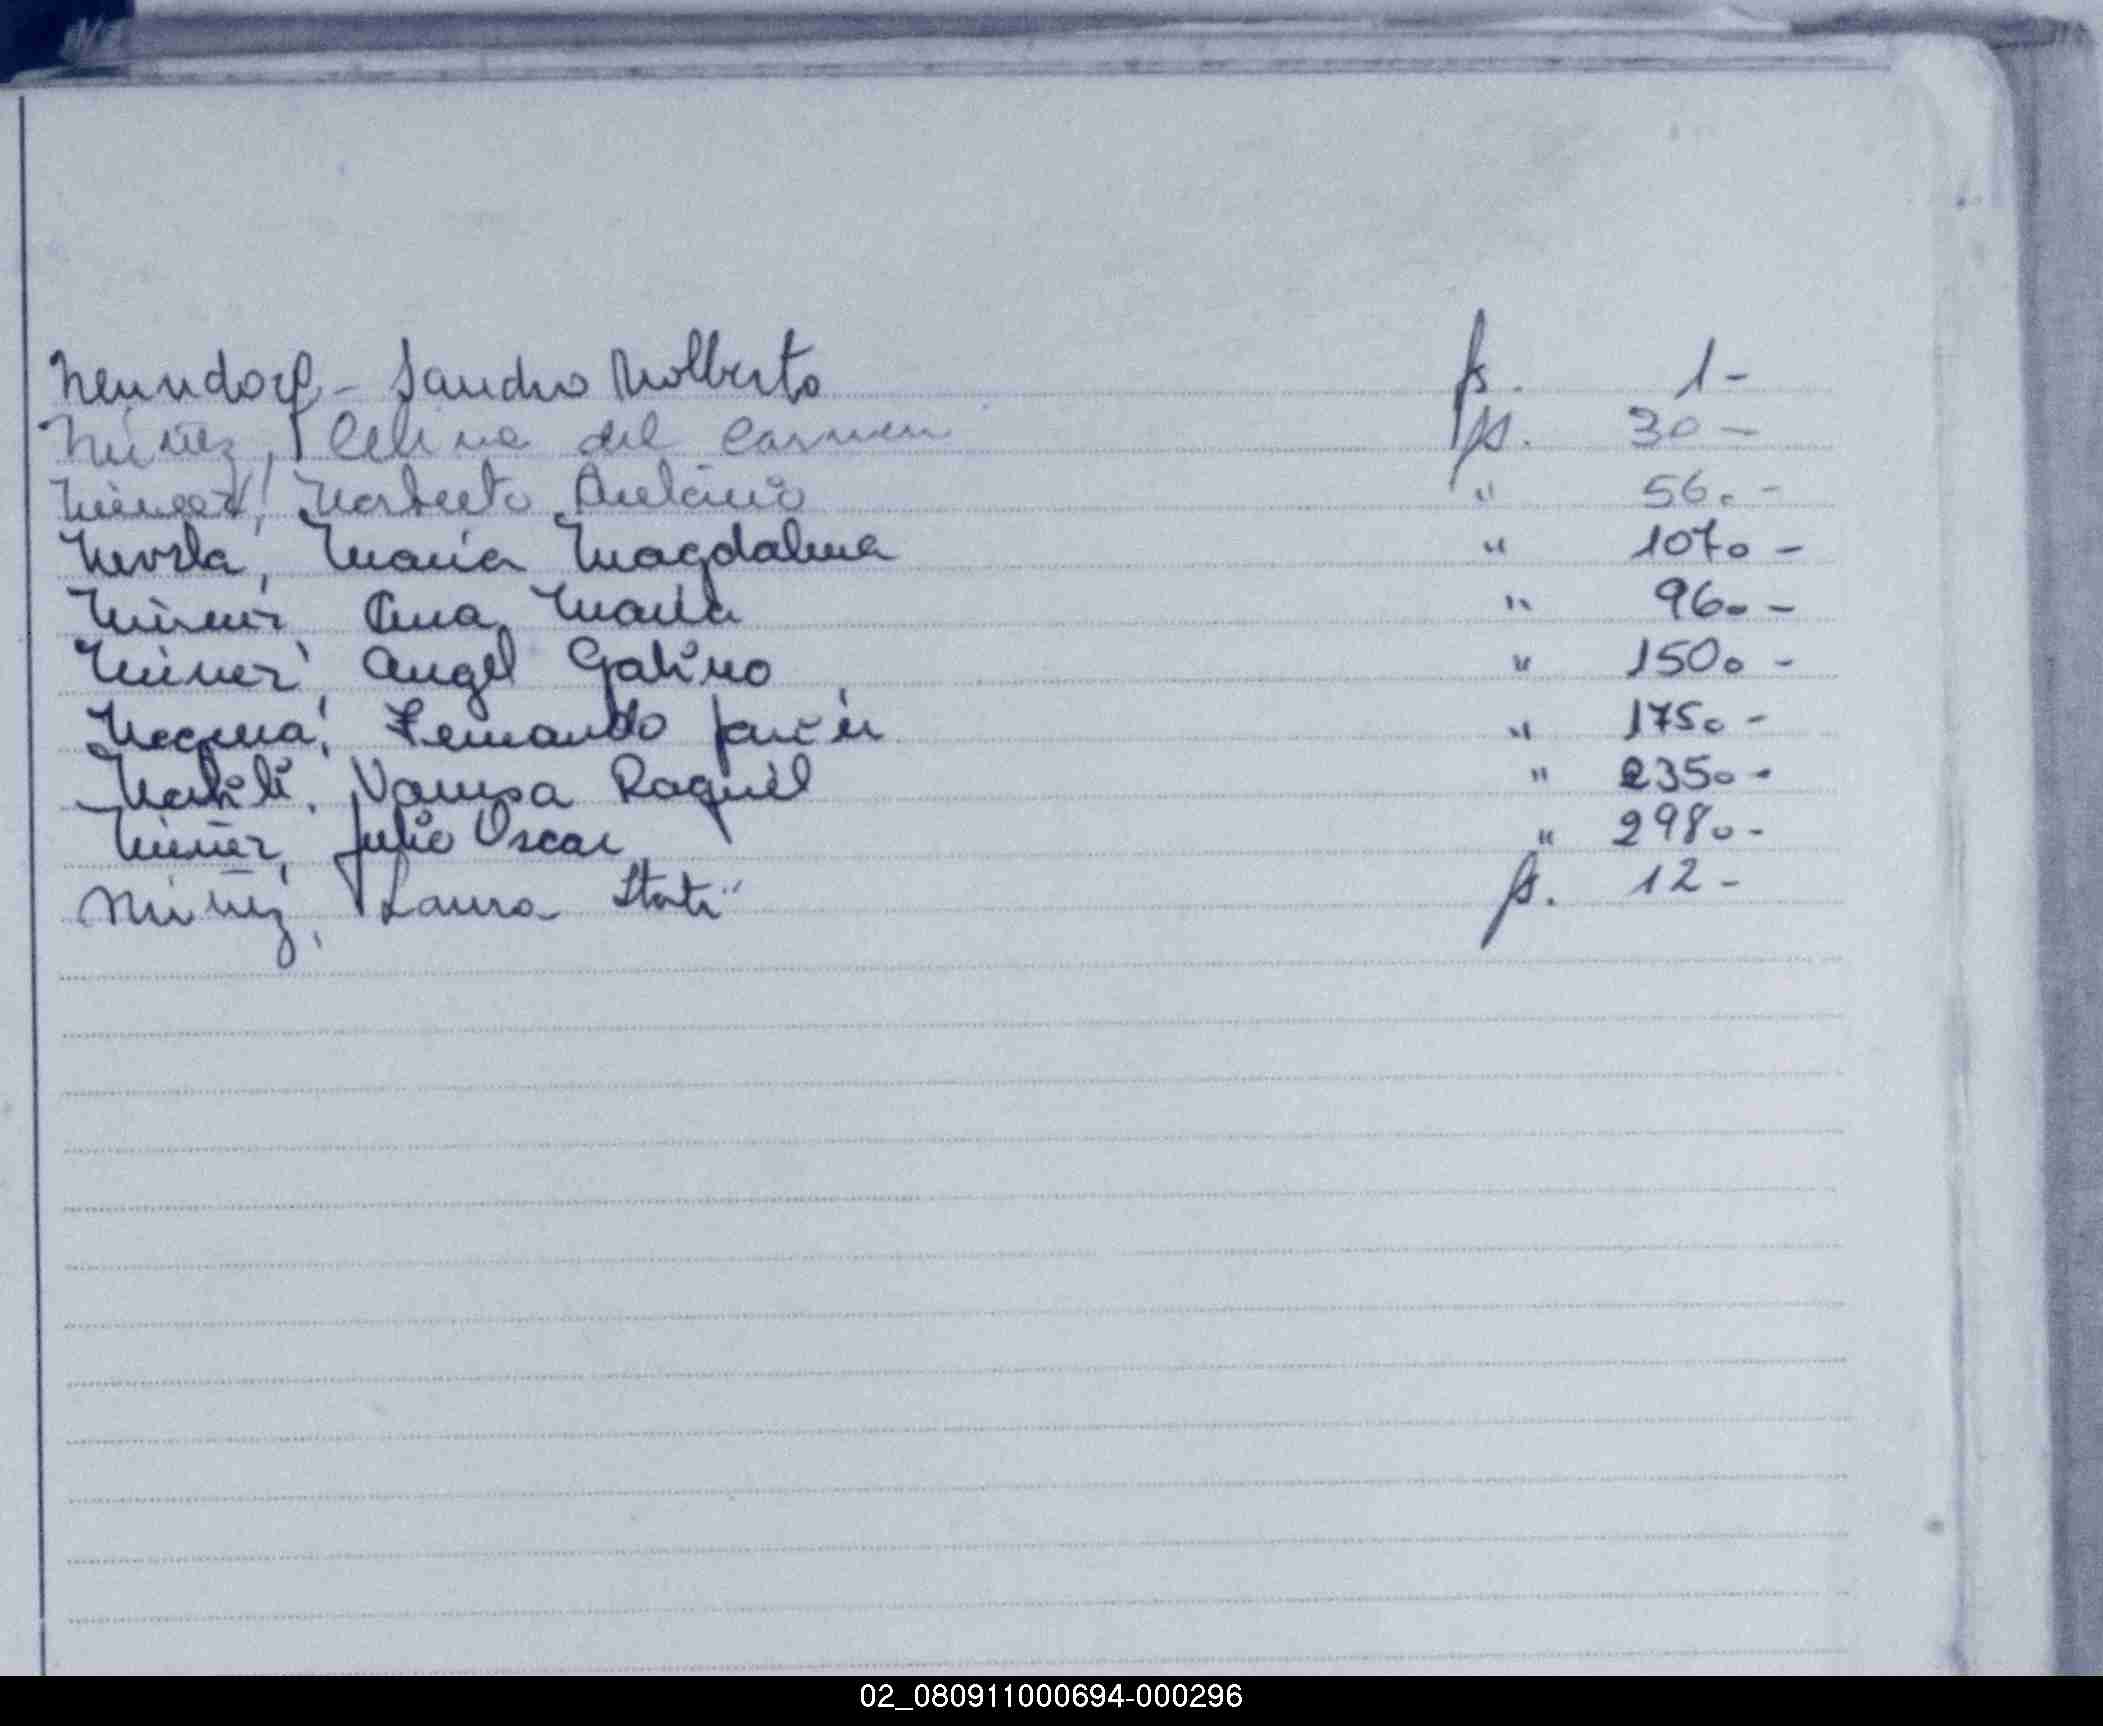 Neundorf - Sandro Nolberto fs. 1-
Núñez, Celina del Carmen fs. 30-
Norberto Antonio " 56.-
María Magdalena " 107.-
Núñez, Ana María " 96.-
Núñez, Angel Gabino " 150.-
Fernando Javier " 175.-
Vanesa Raquel " 235.-
Núñez, Julio Oscar " 298.-
Núñez, Laura fs. 12-
02_080911000694-000296